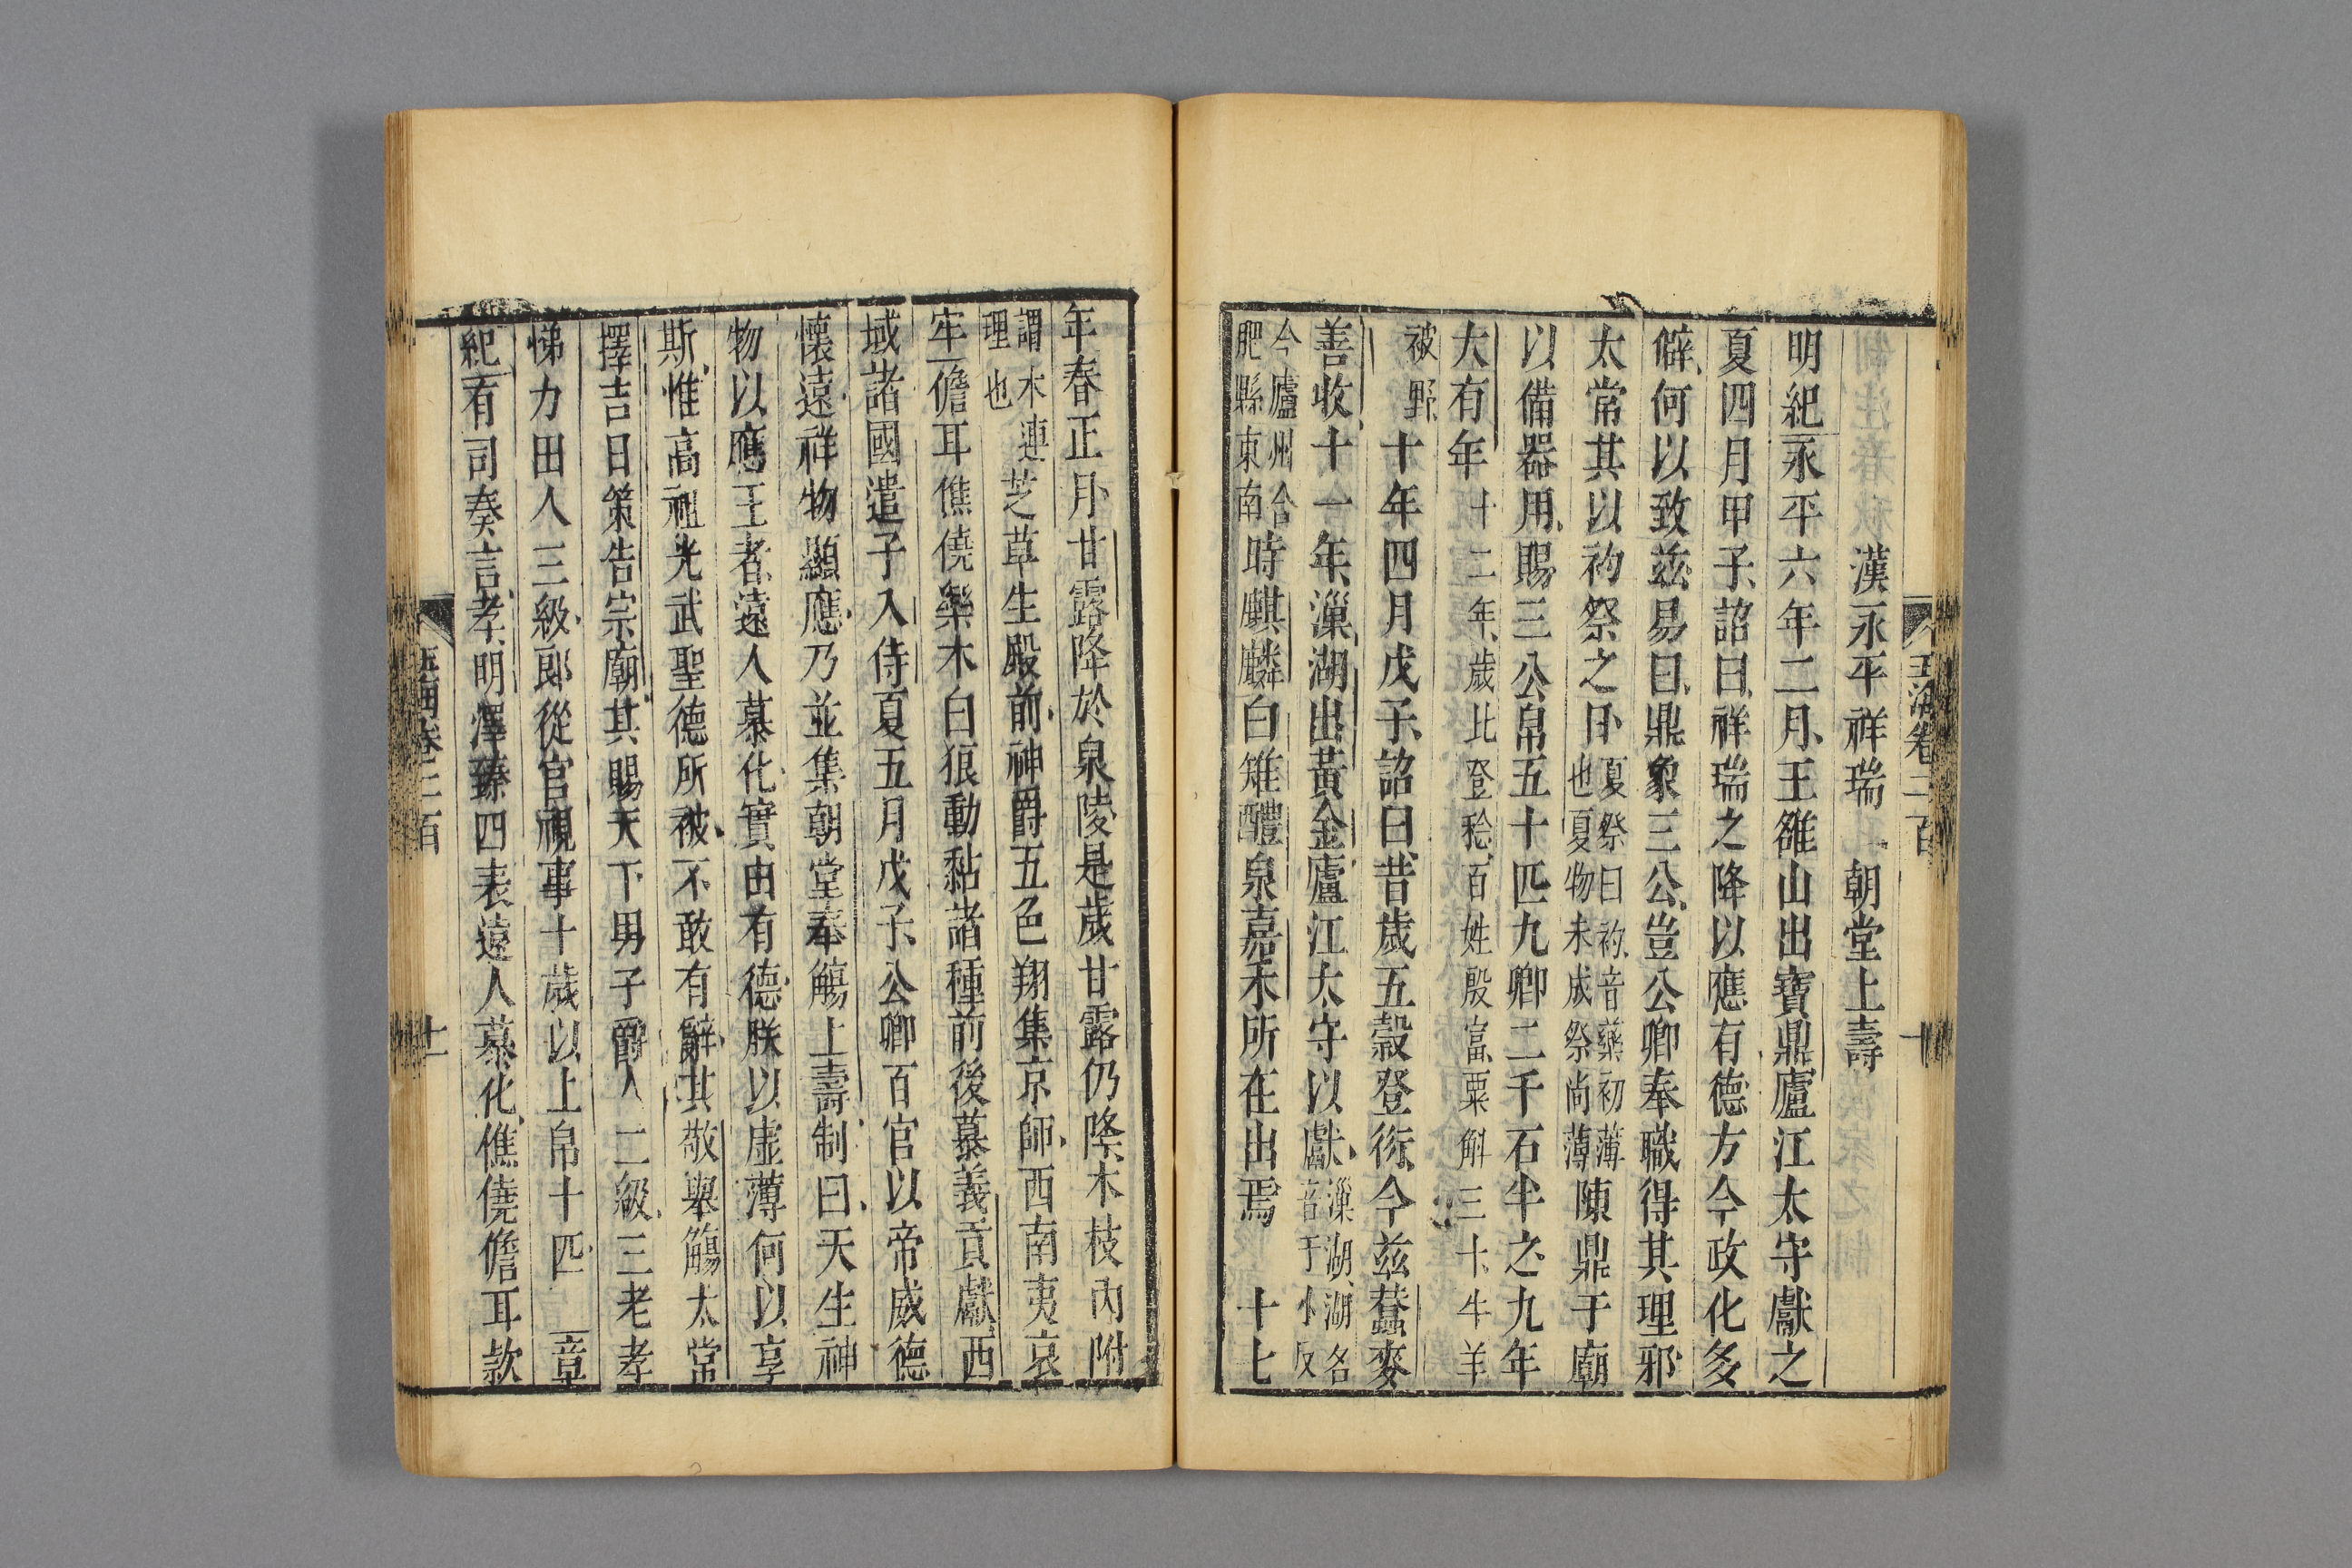 玉海卷二百 十
漢永平祥瑞 朝堂上壽
明紀永平六年二月王雒山出寶鼎廬江太守獻之
夏四月甲子詔曰祥瑞之降以應有德方今政化多
僻何以致茲易曰鼎象三公豈公卿奉職得其理邪
太常其以礿祭之日夏祭曰礿音藥初薄也夏物未成祭尚薄陳鼎于廟
以備器用賜三公帛五十匹九卿二千石半之九年
大有年十二年歲比登稔百姓殷富粟斛三十牛羊
被野十年四月戊子詔曰昔歲五穀登衍今茲蠶麥
善收十一年漅湖出黃金廬江太守以獻漅湖湖名音子小反
今廬州合肥縣東南時麒麟白雉醴泉嘉禾所在出焉 十七
年春正月甘露降於泉陵是歲甘露仍降木枝內附
謂木連理也芝草生殿前神爵五色翔集京師西南夷哀
牢儋耳僬僥槃木白狼動黏諸種前後慕義貢獻西
域諸國遣子入侍夏五月戊子公卿百官以帝威德
懷遠祥物顯應乃並集朝堂奉觴上壽制曰天生神
物以應王者遠人慕化實由有德朕以虛薄何以享
斯惟高祖光武聖德所被不敢有辭其敬舉觴太常
擇吉日策告宗廟其賜天下男子爵人二級三老孝
悌力田人三級郎從官視事十歲以上帛十匹 章
紀有司奏言孝明澤臻四表遠人慕化僬僥儋耳款
玉海卷二百 十一